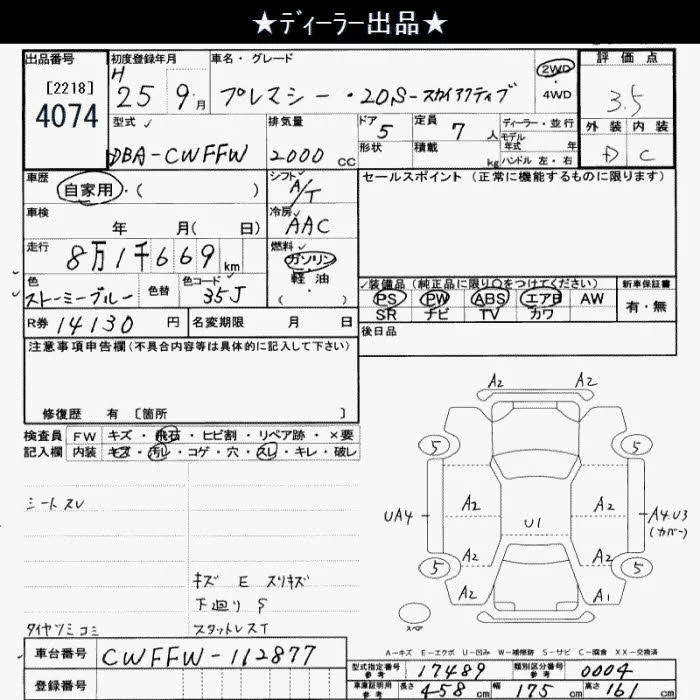 ★ディーラー出品★
出品番号
[2218]
4074
初度登録年月
H 25 9月
車名・グレード
プレマシー・20S-スカイアクティブ
2WD
4WD
評価点
3.5
外装 内装
D C
型式
DBA-CWFFW
排気量
2000 CC
ドア 5
形状
定員 7人
積載 kg
ディーラー・並行
モデル
年式 年
ハンドル 左・右
車歴
自家用・( )
シフト
A/T
セールスポイント (正常に機能するものに限ります)
車検
年 月( 日)
冷房
AAC
走行
8万1千669km
燃料
ガソリン
軽油
( )
色
ストーミーブルー
色替
色コード
35J
装備品 (純正品に限り○をつけてください)
PS PW ABS エアB AW
SR ナビ TV カワ
新車保証書
有・無
R券 14130円
名変期限 月 日
後日品
注意事項申告欄(不具合内容等は具体的に記入して下さい)
修復歴 有 [箇所 ]
検査員
記入欄
FW キズ・飛石・ヒビ割・リペア跡・×要
内装 キズ・汚レ・コゲ・穴・スレ・キレ・破レ
シートスレ
キズ E スリキズ
下廻り S
タイヤツミコミ
スタットレスT
A2 A2
5 5
A2 A2
UA4 U1 A4.U3
(カバー)
A2 A2
5 5
A2 A1
スペア
A-キズ E-エクボ U-凹み W-補修跡 S-サビ C-腐食 XX-交換済
車台番号 CWFFW-112877
登録番号
型式指定番号
参考
17489
類別区分番号
参考
0004
車庫証明用
参考
長さ 458cm 幅 175cm 高さ 161cm